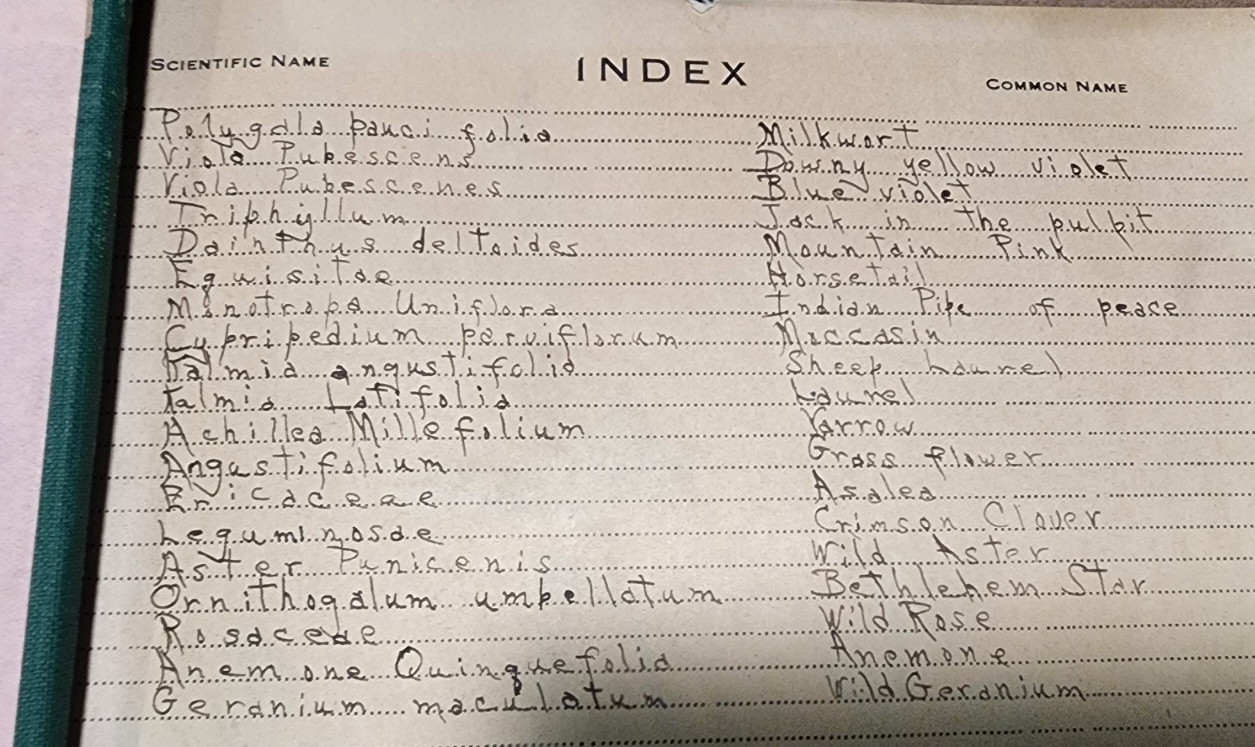 SCIENTIFIC NAME INDEX COMMON NAME
Polygala pauci folia Milkwort
Viola Pubescens Downy yellow violet
Viola Pubescenes Blue violet
Triphyllum Jack in the pulpit
Dainthus deltoides Mountain Pink
Equisitae Horsetail
Monotropa Uniflora Indian Pipe of peace
Cypripedium parviflorum Moccasin
Kalmia angustifolia Sheep Laurel
Kalmia Latifolia Laurel
Achillea Millefolium Yarrow
Angustifolium Grass flower
Ericaceae Asalea
Leguminosae Crimson Clover
Aster Punicenis Wild Aster
Ornithogalum umbellatum Bethlehem Star
Rosaceae Wild Rose
Anemone Quinquefolia Anemone
Geranium maculatum Wild Geranium